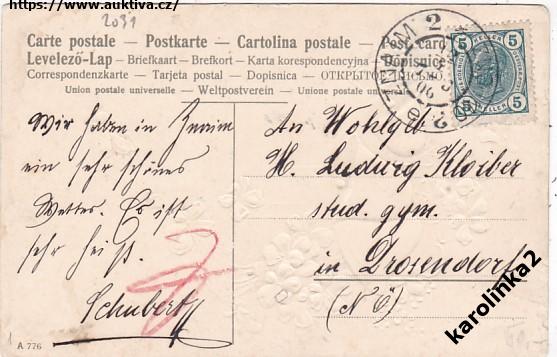 https://www.auktiva.cz/
2031
Carte postale – Postkarte – Cartolina postale – Post card
Levelező-Lap – Briefkaart – Brefkort – Karta korespondencyjna – Dopisnice
Correspondenzkarte – Tarjeta postal – Dopisnica – ОТКРЫТОЕ ПИСЬМО.
Union postale universelle – Weltpostverein – Unione postale universale
ZNAIM 2
2
06
5 HELLER 5
5 HELLER 5
Wir haben in Znaim
ein sehr schönes
Wetter. Es ist
sehr heiß.
Schubert
An Wohlgb
H. Ludwig Kloiber
stud. gym.
in Drosendorf
(N Ö)
A 776
karolinka2